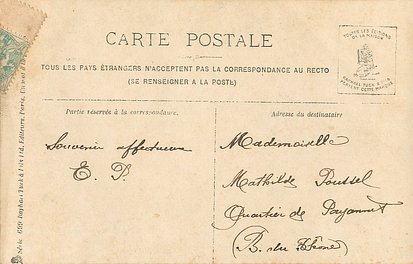 CARTE POSTALE
TOUS LES PAYS ÉTRANGERS N'ACCEPTENT PAS LA CORRESPONDANCE AU RECTO
(SE RENSEIGNER A LA POSTE)
TOUTES LES ÉDITIONS
DE LA MAISON
RAPHAEL TUCK & FILS
PORTENT CETTE MARQUE
Partie réservée à la correspondance.
Adresse du destinataire
Souvenir affectueux
E. P.
Mademoiselle
Mathilde Poussel
Quartier de
(B. du Rhône)
Série 699 Raphael Tuck & Fils Ltd, Editeurs, Paris.